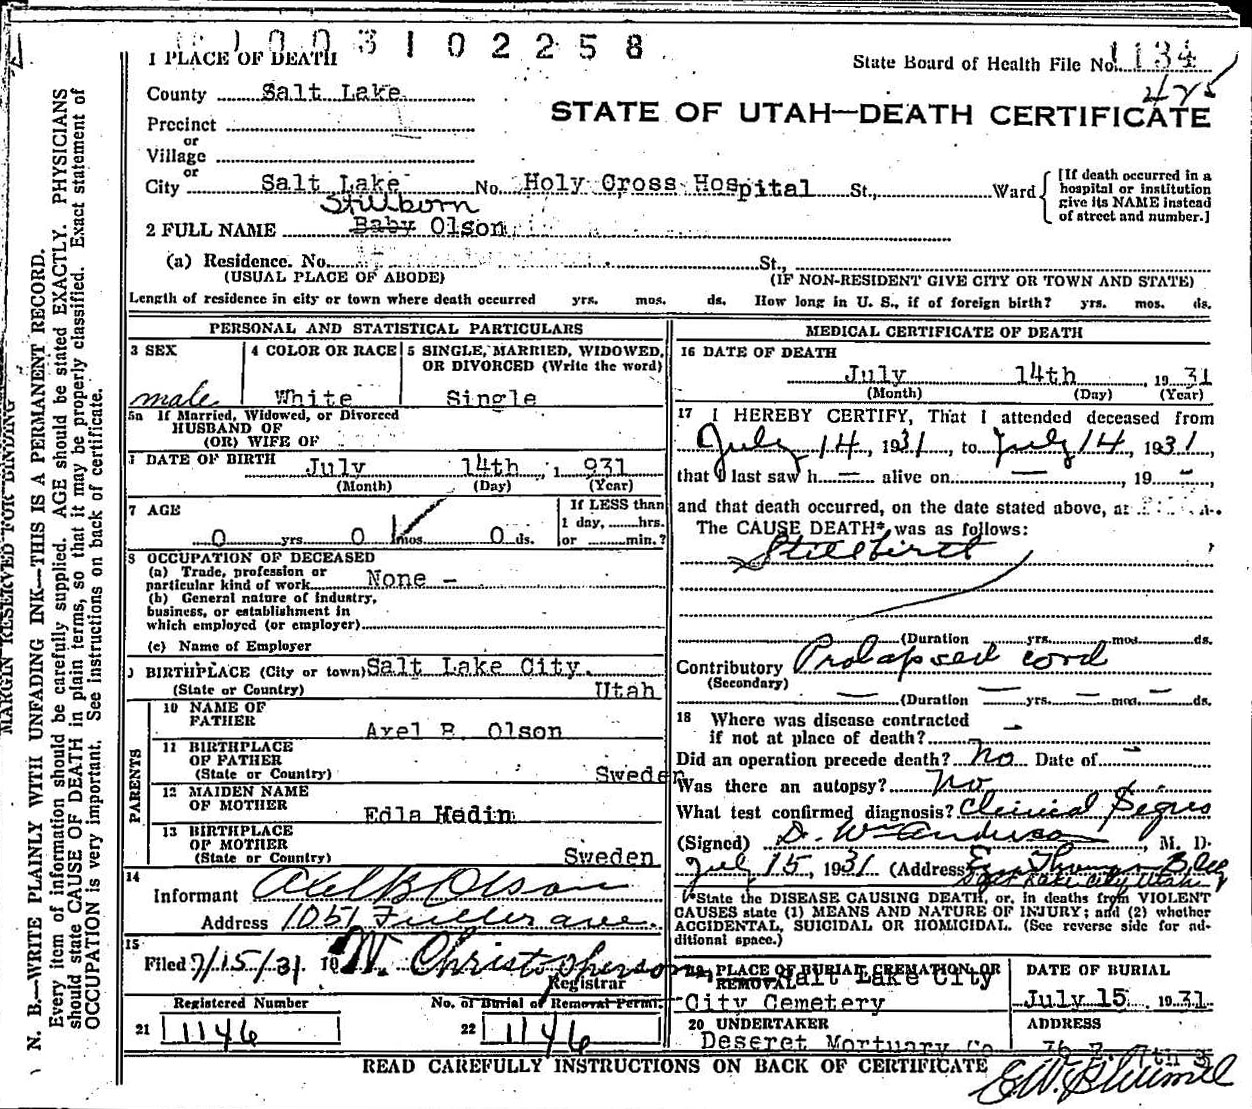 1003102258
1 PLACE OF DEATH
State Board of Health File No. 1134
County Salt Lake
425
STATE OF UTAH—DEATH CERTIFICATE
Precinct
or
Village
or
City Salt Lake No. Holy Cross Hospital St., Ward
[If death occurred in a
hospital or institution
give its NAME instead
of street and number.]
Stillborn
2 FULL NAME Baby Olson
(a) Residence. No. St.,
(USUAL PLACE OF ABODE) (IF NON-RESIDENT GIVE CITY OR TOWN AND STATE)
Length of residence in city or town where death occurred yrs. mos. ds. How long in U. S., if of foreign birth? yrs. mos. ds.
PERSONAL AND STATISTICAL PARTICULARS
3 SEX
male
4 COLOR OR RACE
White
5 SINGLE, MARRIED, WIDOWED,
OR DIVORCED (Write the word)
Single
5a If Married, Widowed, or Divorced
HUSBAND OF
(OR) WIFE OF
DATE OF BIRTH July 14th, 1931
(Month) (Day) (Year)
7 AGE
0 yrs. 0 mos. 0 ds.
If LESS than
1 day, hrs.
or min.?
8 OCCUPATION OF DECEASED
(a) Trade, profession or
particular kind of work None -
(b) General nature of industry,
business, or establishment in
which employed (or employer)
(c) Name of Employer
9 BIRTHPLACE (City or town) Salt Lake City.
(State or Country) Utah
PARENTS
10 NAME OF
FATHER Axel B. Olson
11 BIRTHPLACE
OF FATHER
(State or Country) Sweden
12 MAIDEN NAME
OF MOTHER Edla Hedin
13 BIRTHPLACE
OF MOTHER
(State or Country) Sweden
14
Informant Axel B Olson
Address 1051 Fuller ave.
15
Filed 7/15/31 19 W. Christopherson,
Registrar
Registered Number
21 1146
No. of Burial or Removal Permit
22 1146
MEDICAL CERTIFICATE OF DEATH
16 DATE OF DEATH
July 14th, 1931
(Month) (Day) (Year)
17 I HEREBY CERTIFY, That I attended deceased from
July 14, 1931, to July 14, 1931,
that I last saw h— alive on —, 19 -,
and that death occurred, on the date stated above, at
The CAUSE DEATH* was as follows:
Stillbirth
(Duration yrs. mos. ds.
Contributory Prolapsed cord
(Secondary)
— (Duration — yrs. — mos. — ds.
18 Where was disease contracted
if not at place of death? -
Did an operation precede death? No Date of -
Was there an autopsy? No
What test confirmed diagnosis? Clinical Signs
(Signed) D. Wm Anderson, M. D.
July 15, 1931 (Address
Salt Lake City, Utah
*State the DISEASE CAUSING DEATH, or, in deaths from VIOLENT
CAUSES state (1) MEANS AND NATURE OF INJURY; and (2) whether
ACCIDENTAL, SUICIDAL OR HOMICIDAL. (See reverse side for ad-
ditional space.)
PLACE OF BURIAL CREMATION OR
REMOVAL Salt Lake City
City Cemetery
DATE OF BURIAL
July 15 1931
20 UNDERTAKER
Deseret Mortuary Co
ADDRESS
READ CAREFULLY INSTRUCTIONS ON BACK OF CERTIFICATE
MARGIN RESERVED FOR BINDING
N. B.—WRITE PLAINLY WITH UNFADING INK—THIS IS A PERMANENT RECORD.
Every item of information should be carefully supplied. AGE should be stated EXACTLY. PHYSICIANS
should state CAUSE OF DEATH in plain terms, so that it may be properly classified. Exact statement of
OCCUPATION is very important. See instructions on back of certificate.